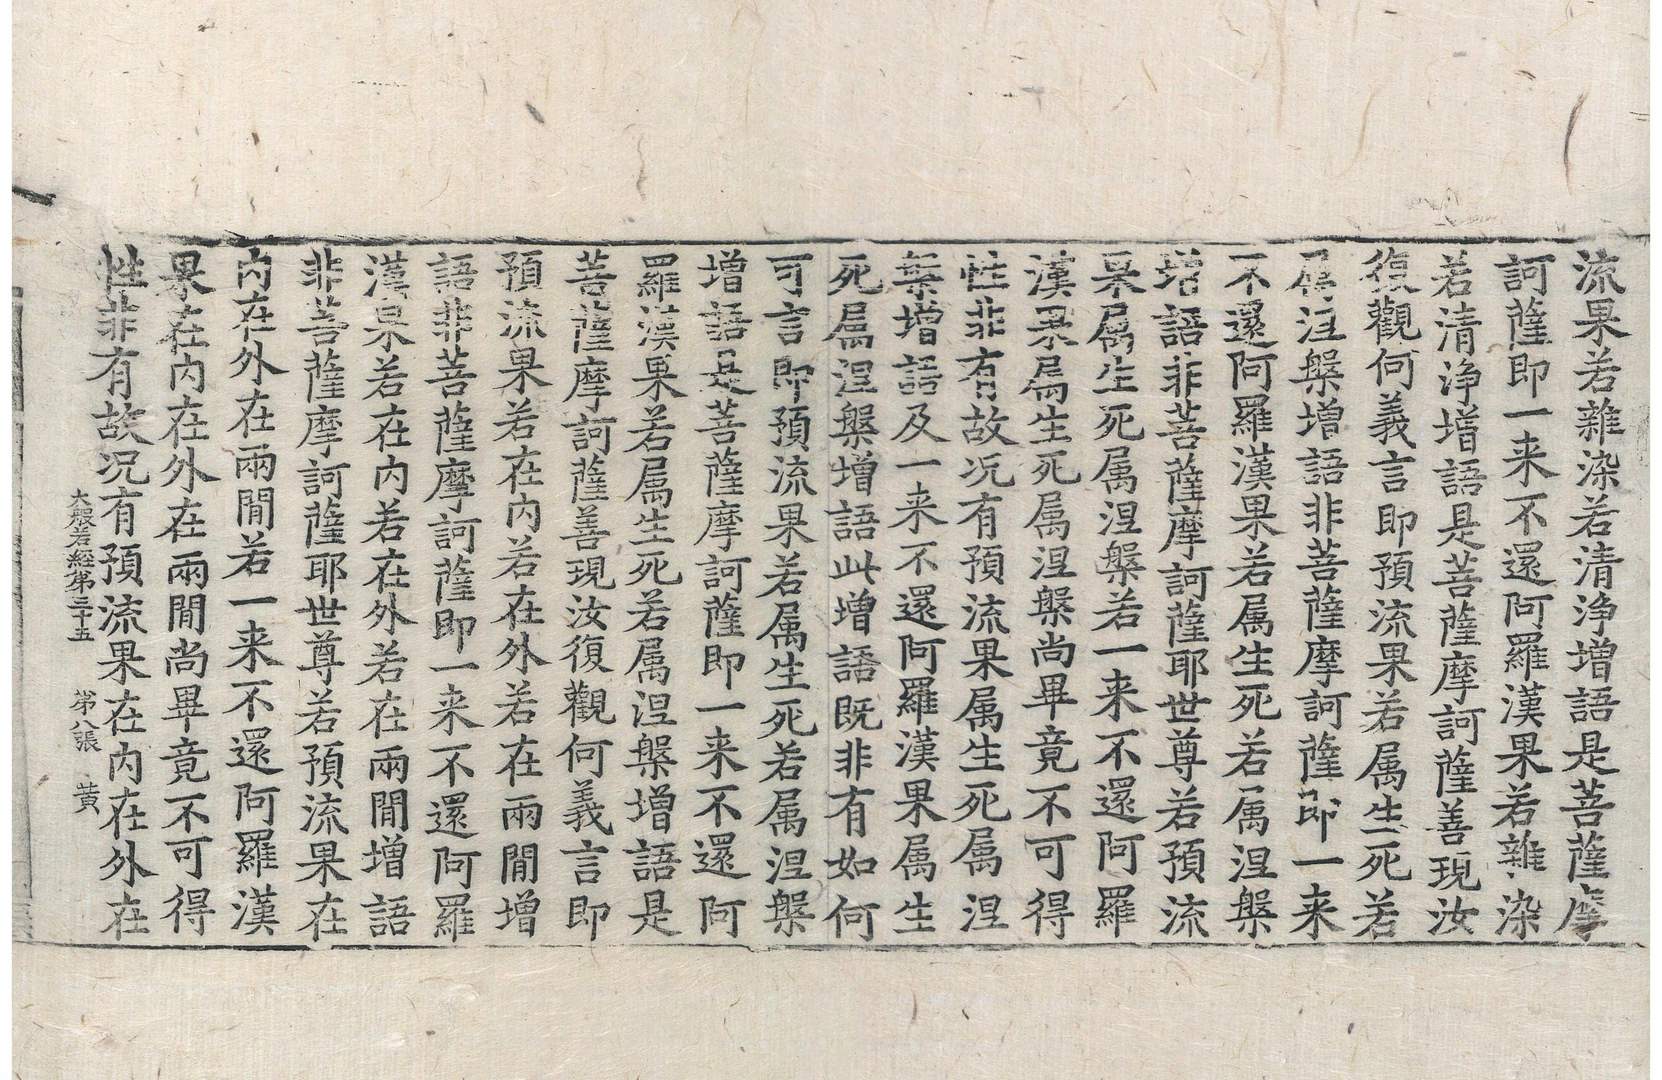 流果若雜染若清淨增語是菩薩摩
訶薩即一来不還阿羅漢果若雜染
若清淨增語是菩薩摩訶薩善現汝
復觀何義言即預流果若属生死若
属涅槃增語非菩薩摩訶薩即一来
不還阿羅漢果若属生死若属涅槃
增語非菩薩摩訶薩耶世尊若預流
果属生死属涅槃若一来不還阿羅
漢果属生死属涅槃尚畢竟不可得
性非有故况有預流果属生死属涅
槃增語及一来不還阿羅漢果属生
死属涅槃增語此增語既非有如何
可言即預流果若属生死若属涅槃
增語是菩薩摩訶薩即一来不還阿
羅漢果若属生死若属涅槃增語是
菩薩摩訶薩善現汝復觀何義言即
預流果若在内若在外若在兩閒增
語非菩薩摩訶薩即一来不還阿羅
漢果若在内若在外若在兩閒增語
非菩薩摩訶薩耶世尊若預流果在
内在外在兩閒若一来不還阿羅漢
果在内在外在兩閒尚畢竟不可得
性非有故况有預流果在内在外在
大般若經第三十五 第八張 黄